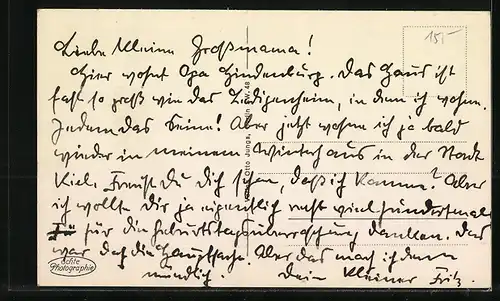 15,-
Liebe kleine Großmama!
Hier wohnt Opa Hindenburg. Das Haus ist
fast so groß wie das Ledigenheim, in dem ich wohne.
Jedem das Seine! Aber jetzt wohne ich ja bald
wieder in meinem Winterhaus in der Stadt
Kiel. Freust Du Dich schon, daß ich komme? Aber
ich wollte Dir ja eigentlich recht viel hundertmal
für die Geburtstagsüberraschung danken. Das
war doch die Hauptsache. Aber das mach ich dann
mündlich. Dein kleiner Fritz.
Echte
Photographie
Otto Junga, Berlin SW. 48